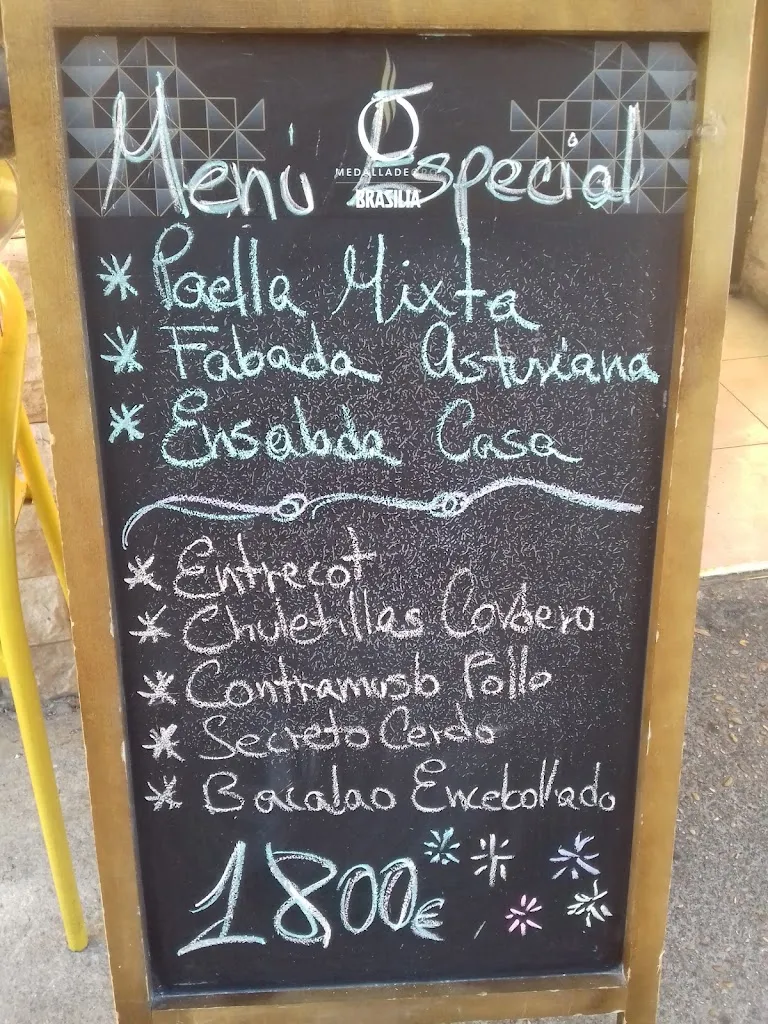 Menú Especial
MEDALLADEORO
BRASILIA
* Paella Mixta
* Fabada Asturiana
* Ensalada Casa
* Entrecot
* Chuletillas Cordero
* Contramuslo Pollo
* Secreto Cerdo
* Bacalao Encebollado
1800€